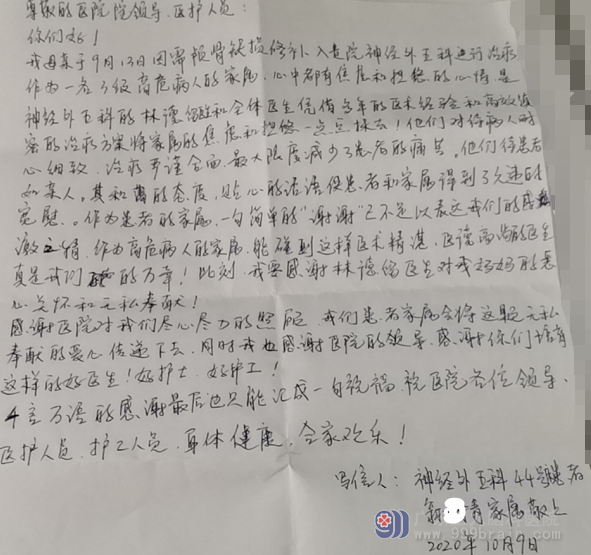 尊敬的医院院领导、医护人员：
你们好！
我母亲于9月13日因需额骨缺损修补入贵院神经外五科进行治疗
作为一名3级高危病人的家属，心中都有焦虑和担忧的心情是
神经外五科的林 和全体医生凭借多年的医术经验和高效缜
密的治疗方案将家属的焦虑和担忧一点点抹去！他们对待病人耐
心细致，治疗严谨全面，最大限度减少了患者的痛苦。他们待患者
如亲人。其和蔼的态度，贴心的话语使患者和家属得到了允速的
宽慰。作为患者的家属，一句简单的“谢谢”已不足以表达我们的感
激之情，作为高危病人的家属，能碰到这样医术精湛、医德高尚的医生
真是我们 的万幸！此刻，我要感谢林 医生对我妈妈的悉
心关怀和无私奉献！
感谢医院对我们尽心尽力的照顾，我们患者家属会将这题无私
奉献的爱心传递下去，同时我也感谢医院的领导，感谢你们培育
这样的好医生！好护士、好护工！
千言万语的感谢最后也只能汇成一句祝福，祝医院各位领导、
医护人员、护工人员，身体健康，合家欢乐！
写信人：神经外五科44号患者
家属敬上
2020年10月9日
999
www.999brain.com